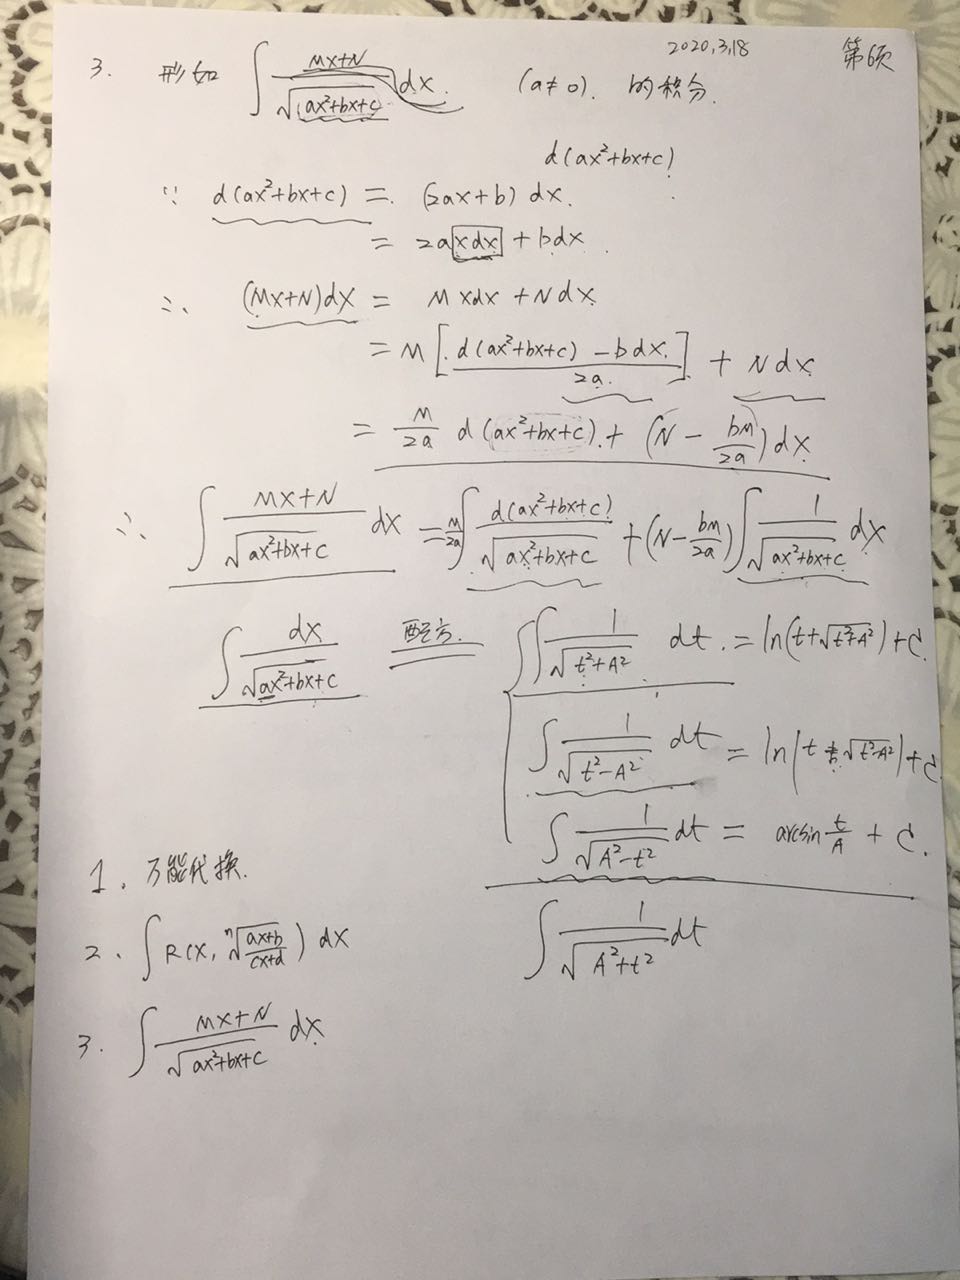 2020,3,18 第6页
3. 形如 ∫ (Mx+N)/√(ax²+bx+c) dx. (a≠0). 的积分.
d(ax²+bx+c)
∵ d(ax²+bx+c) = (2ax+b) dx.
= 2a xdx + bdx
∴ (Mx+N)dx = M xdx + N dx.
= M [ (d(ax²+bx+c) - b dx.)/2a. ] + N dx
= M/2a d(ax²+bx+c) + (N - bM/2a) dx
∴ ∫ (Mx+N)/√(ax²+bx+c) dx = M/2a ∫ d(ax²+bx+c)/√(ax²+bx+c) + (N - bM/2a) ∫ 1/√(ax²+bx+c) dx
∫ dx/√(ax²+bx+c) 配方. { ∫ 1/√(t²+A²) dt. = ln(t+√(t²+A²)) + C.
∫ 1/√(t²-A²) dt = ln|t+√(t²-A²)| + C
∫ 1/√(A²-t²) dt = arcsin t/A + C.
1. 万能代换.
∫ 1/√(A²+t²) dt
2. ∫ R(x, ⁿ√((ax+b)/(cx+d))) dx
3. ∫ (Mx+N)/√(ax²+bx+c) dx